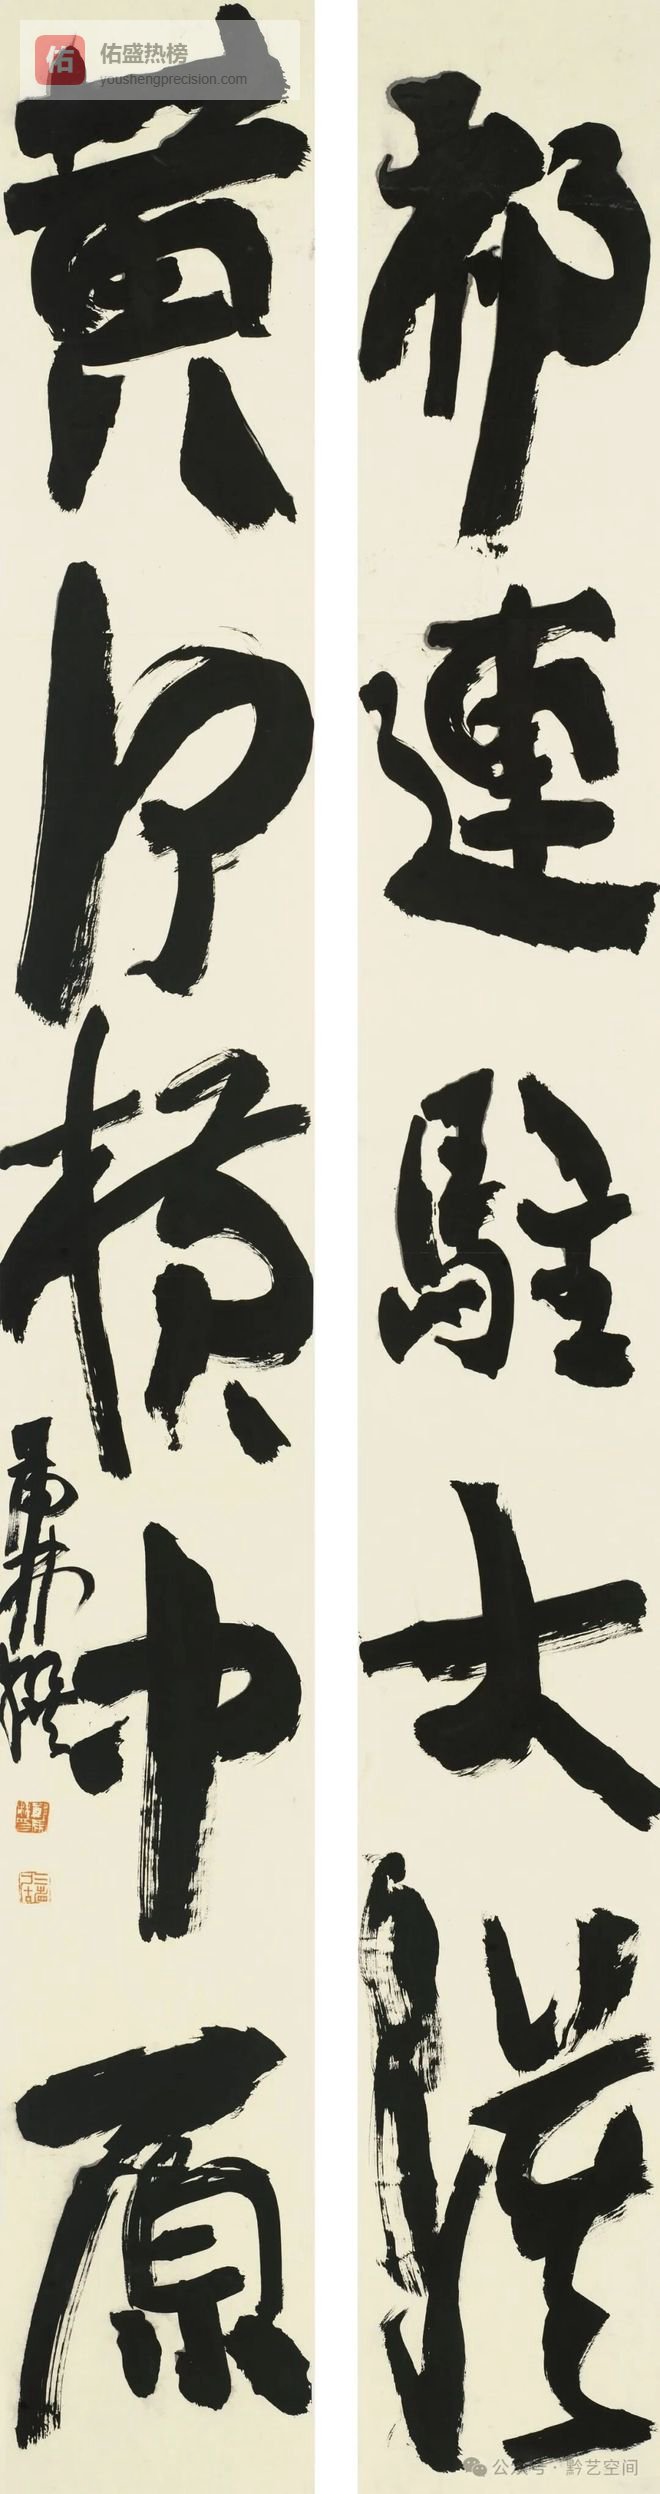 祁連駐大漠
黃河橫中原
撰
佑
佑盛热榜
youshengprecision.com
公众号 · 黔艺空间